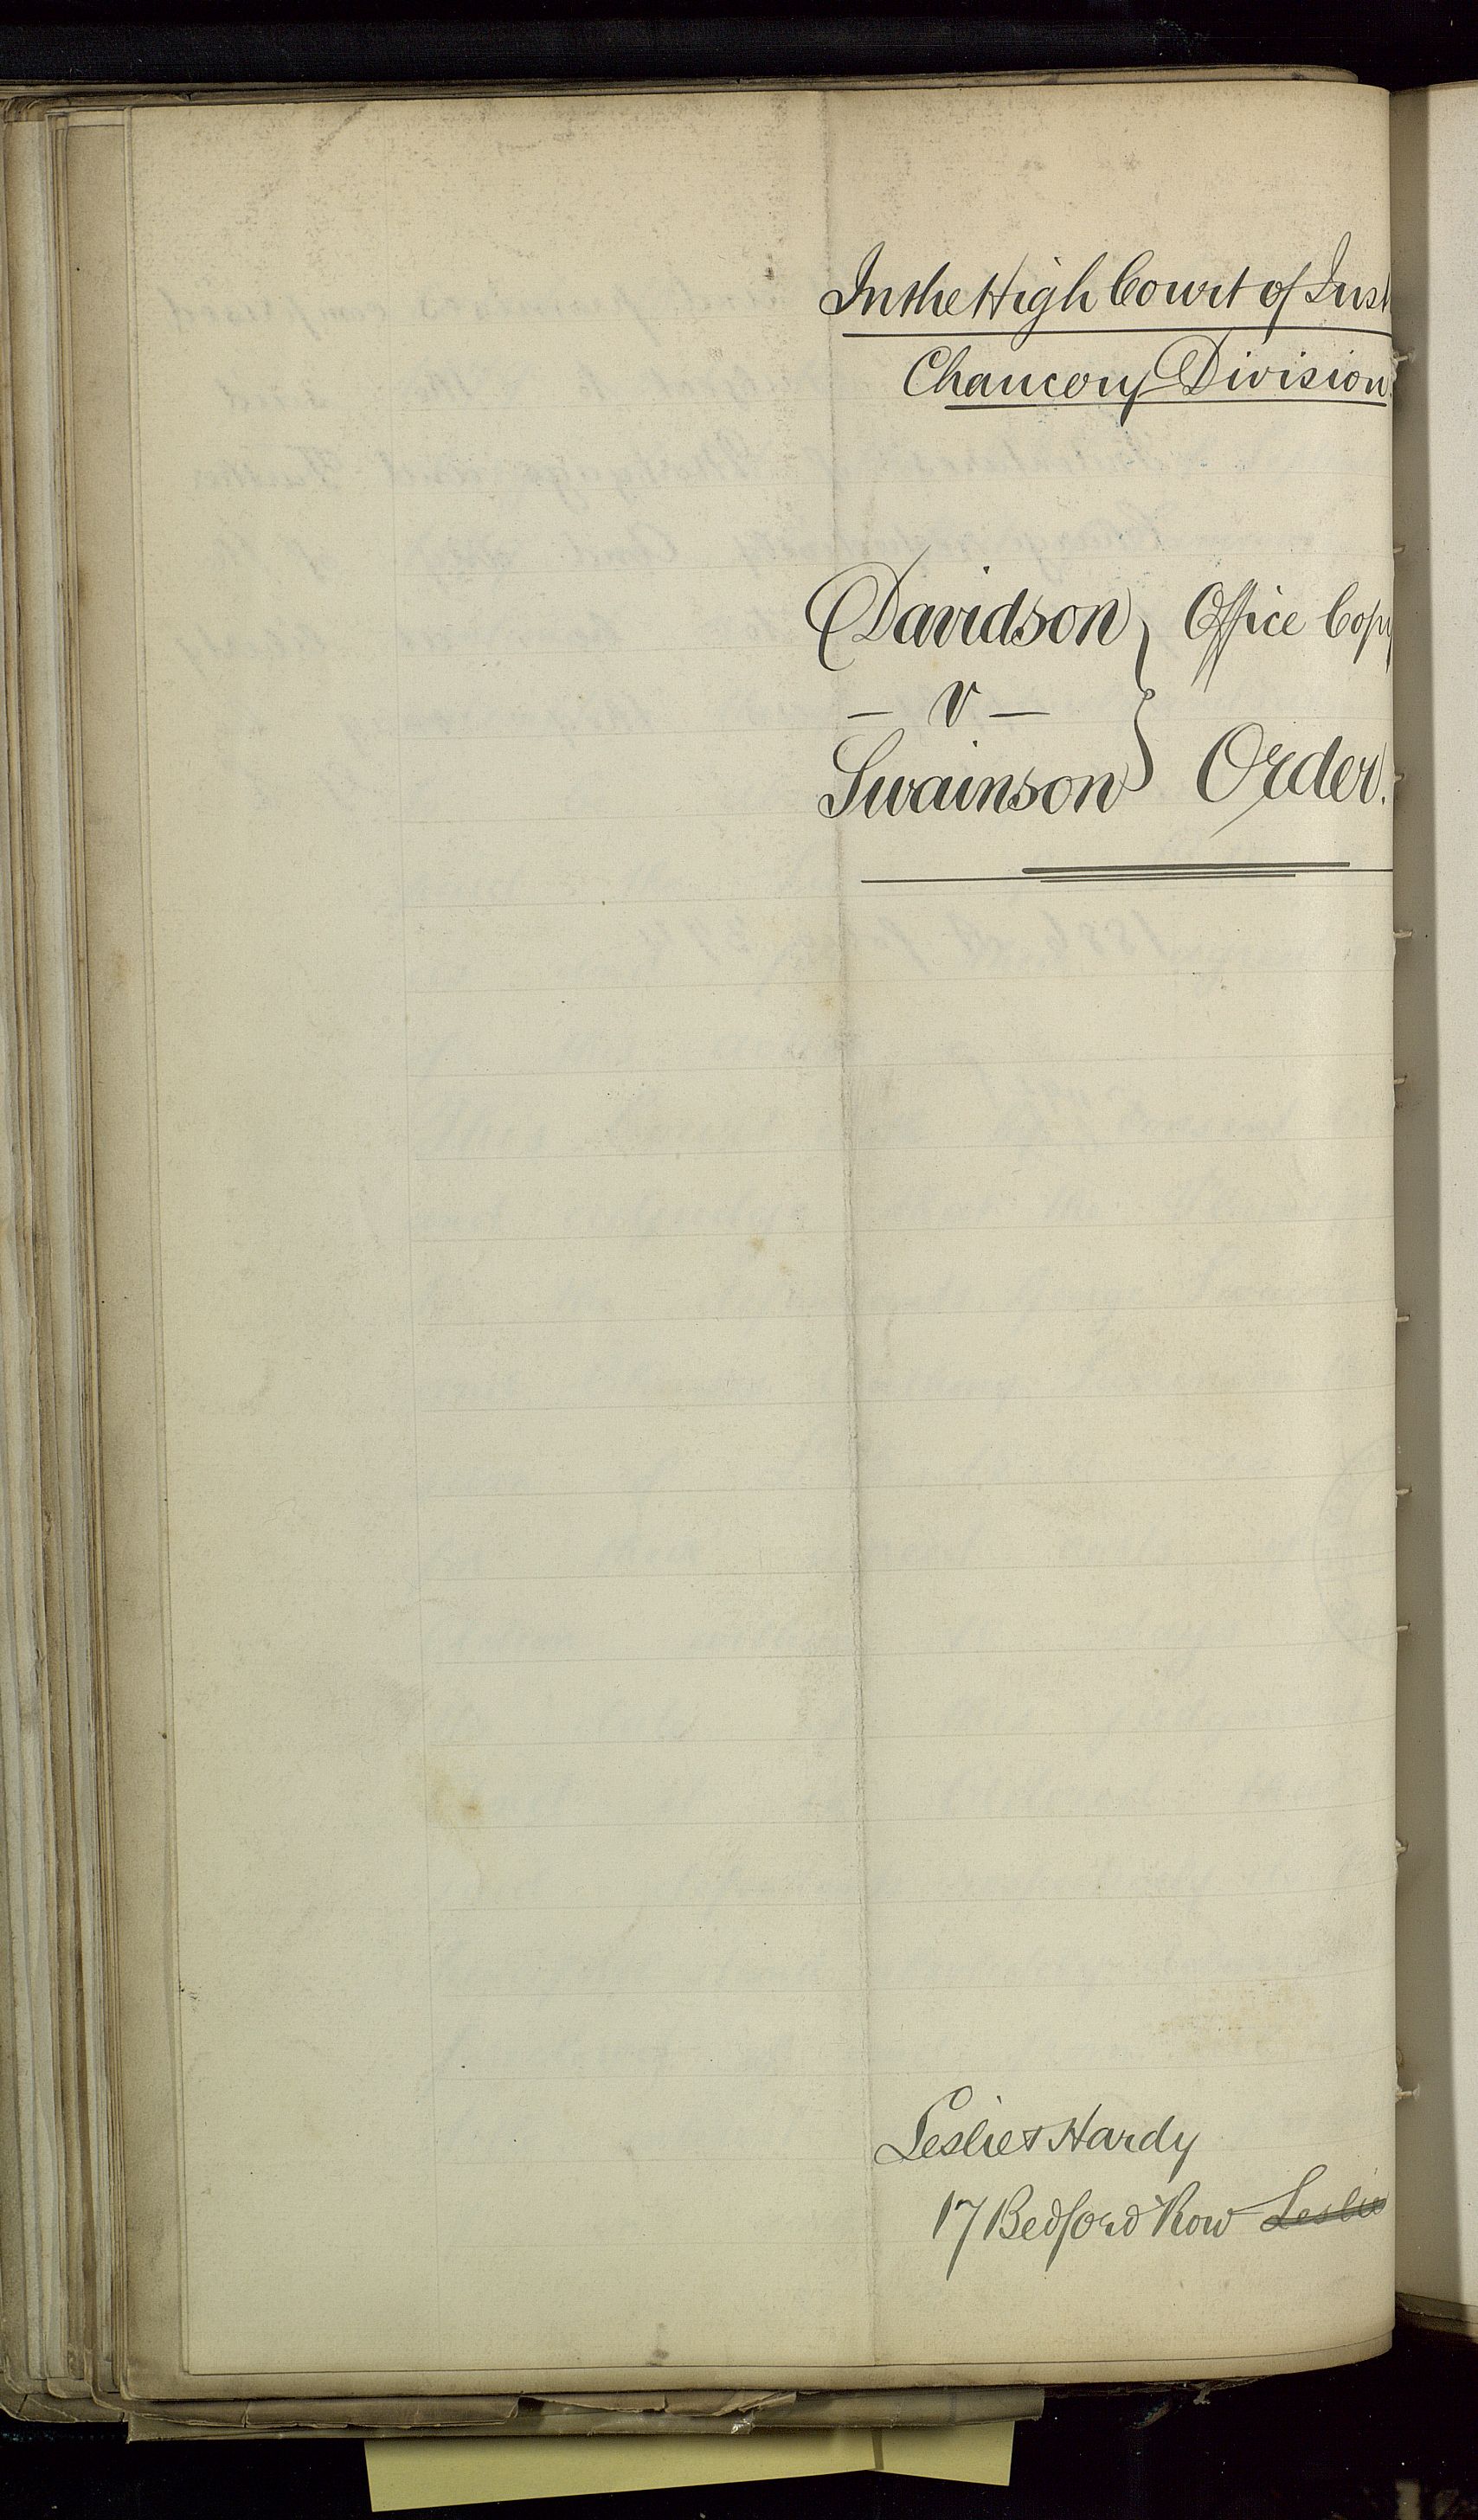 In the High Court of Just
Chancery Division
Davidson
— v —
Swainson
Office Copy
Order.
Leslie & Hardy
17 Bedford Row Leslie